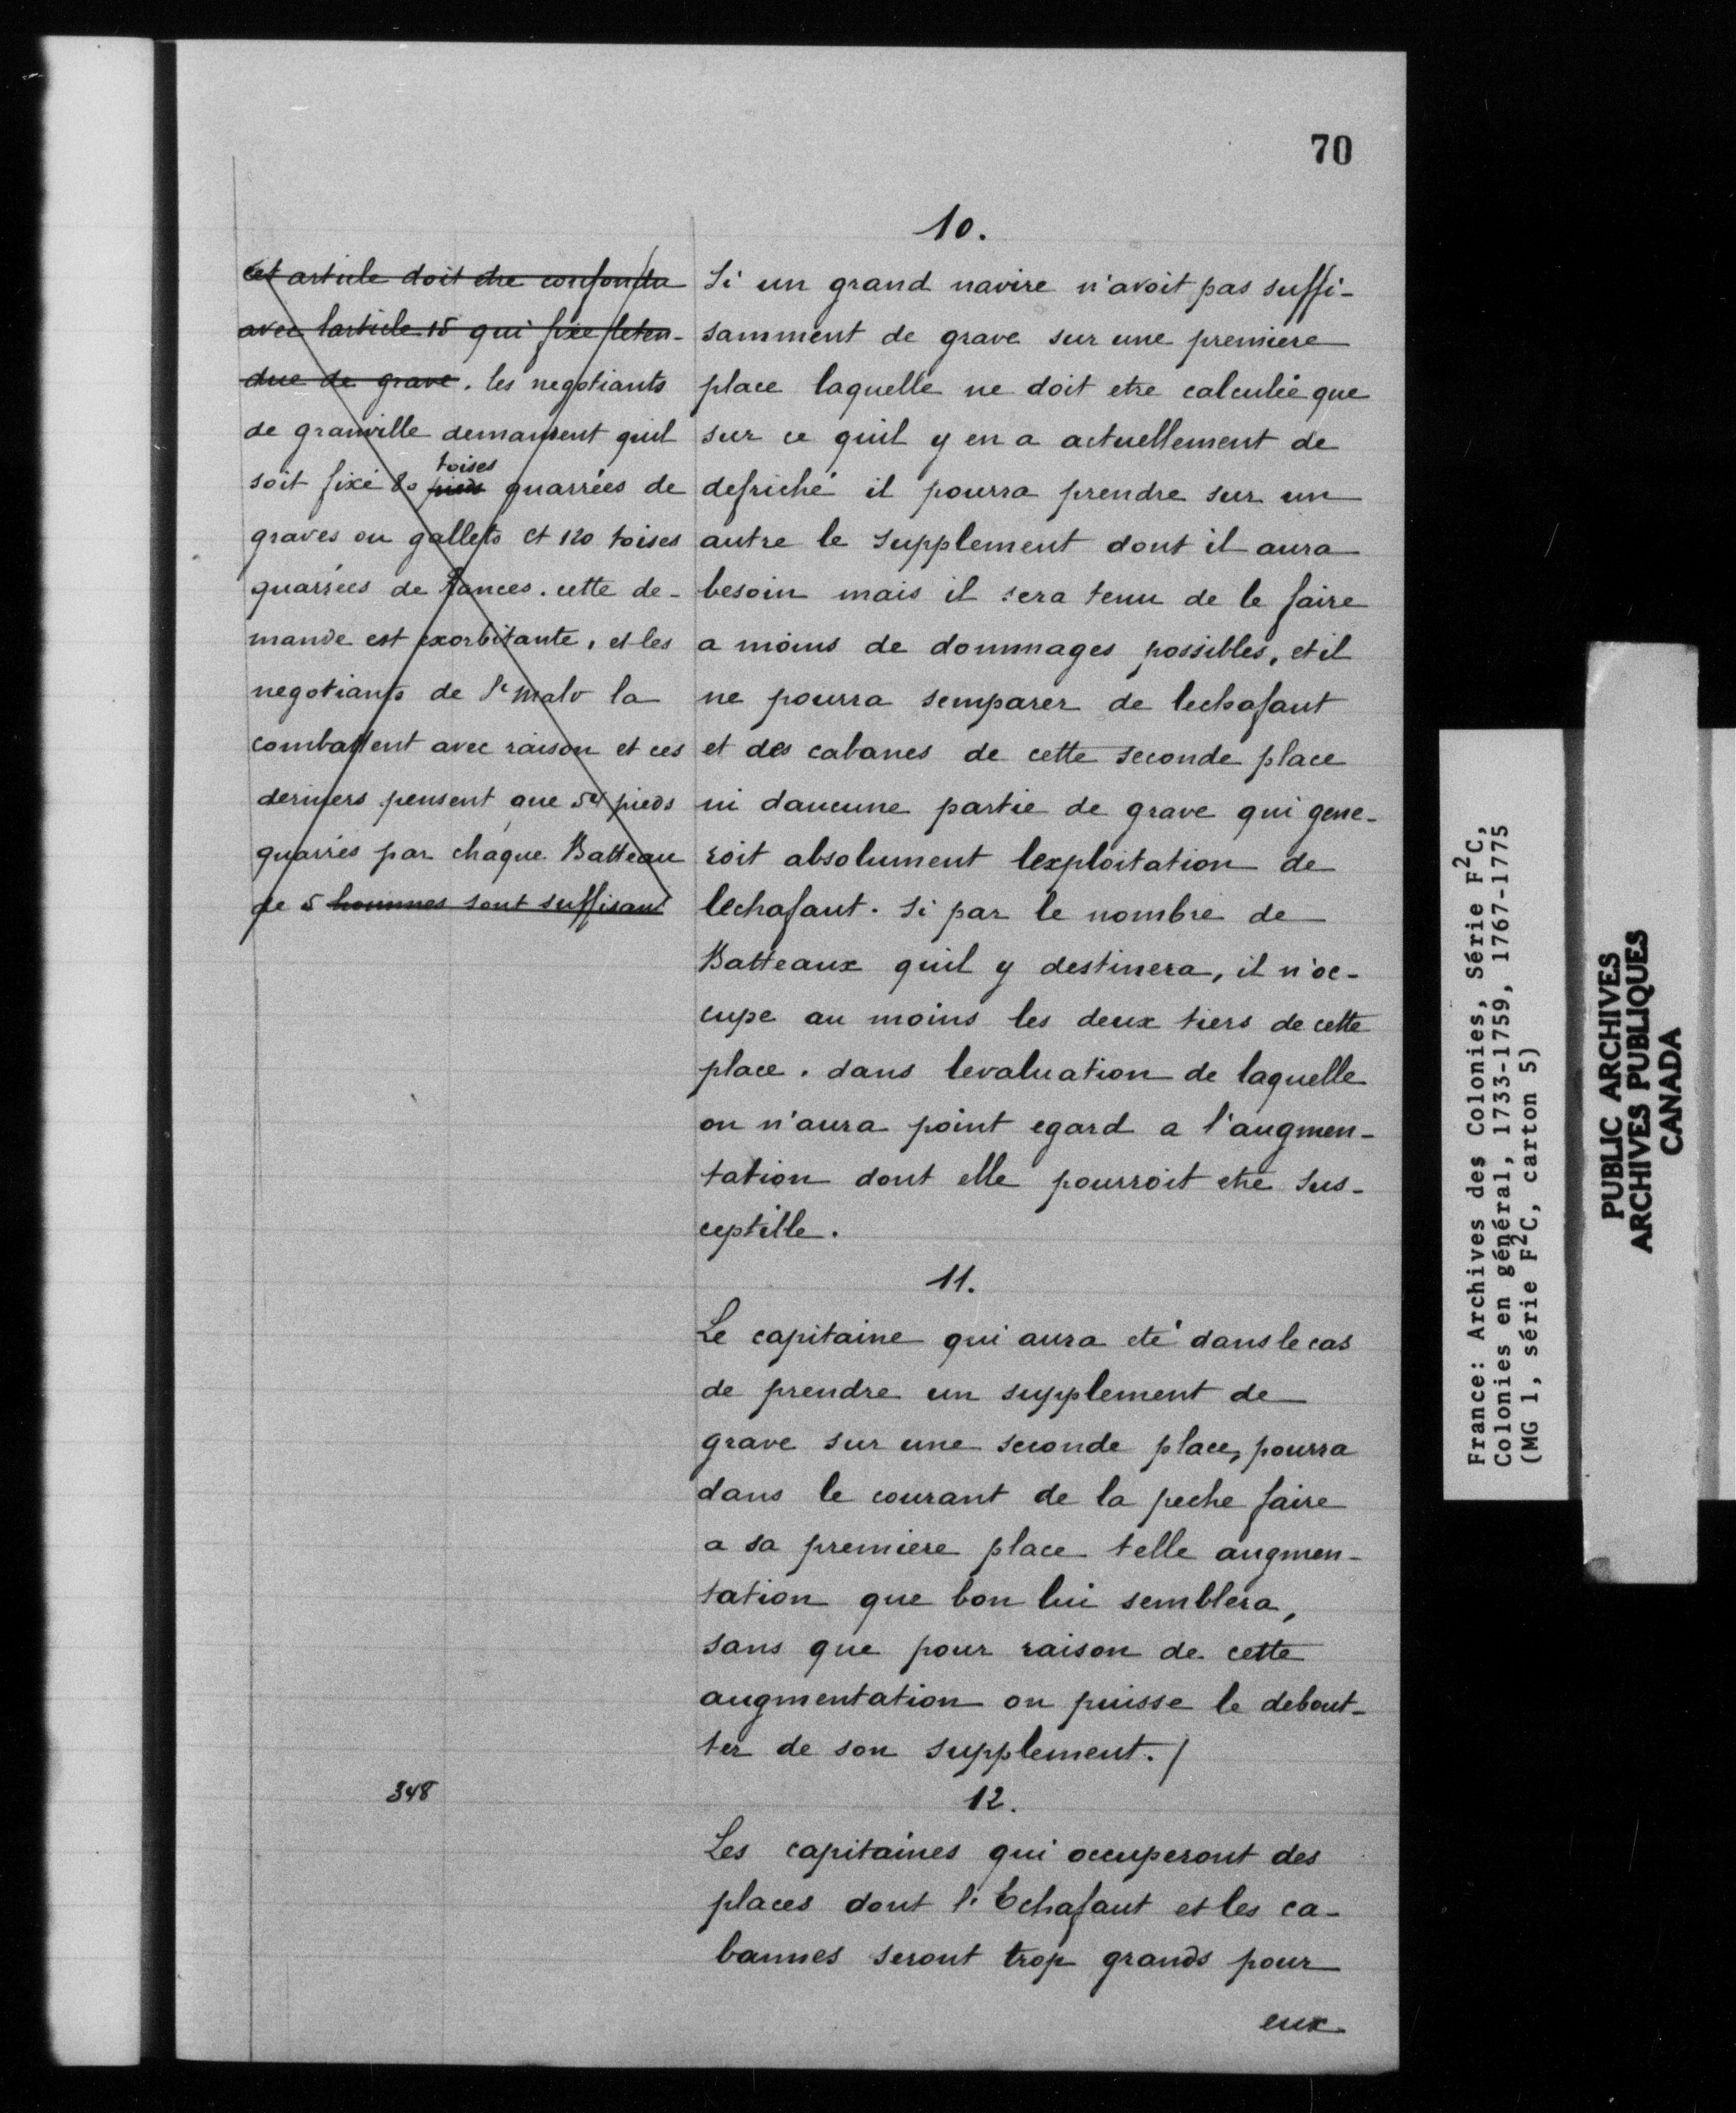 70
10.
cet article doit etre confondu
avec larticle 15 qui fixe leten-
due de grave. les negotiants
de granville demandent quil
soit fixé 80 pieds toises quarrées de
graves ou gallets et 120 toises
quarrées de Rances. cette de-
mande est exorbitante, et les
negotiants de St malo la
combattent avec raison et ces
derniers pensent que 54 pieds
quarrés par chaque Batteau
de 5 hommes sont suffisans
Si un grand navire n'avoit pas suffi-
samment de grave sur une premiere
place laquelle ne doit etre calculée que
sur ce quil y en a actuellement de
defriché il pourra prendre sur un
autre le supplement dont il aura
besoin mais il sera tenu de le faire
a moins de dommages possibles, et il
ne pourra semparer de lechafaut
et des cabanes de cette seconde place
ni daucune partie de grave qui gene-
roit absolument lexploitation de
lechafaut. Si par le nombre de
Batteaux quil y destinera, il n'oc-
cupe au moins les deux tiers de cette
place. dans levaluation de laquelle
on n'aura point egard a l'augmen-
tation dont elle pourroit etre sus-
ceptible.
11.
Le capitaine qui aura eté dans le cas
de prendre un supplement de
grave sur une seconde place, pourra
dans le courant de la peche faire
a sa premiere place telle augmen-
tation que bon lui semblera,
sans que pour raison de cette
augmentation on puisse le debout-
ter de son supplement. /
348
12.
Les capitaines qui occuperont des
places dont l'Echafaut et les ca-
bannes seront trop grands pour
eux
France: Archives des Colonies, Série F2C,
Colonies en général, 1733-1759, 1767-1775
(MG 1, série F2C, carton 5)
PUBLIC ARCHIVES
ARCHIVES PUBLIQUES
CANADA